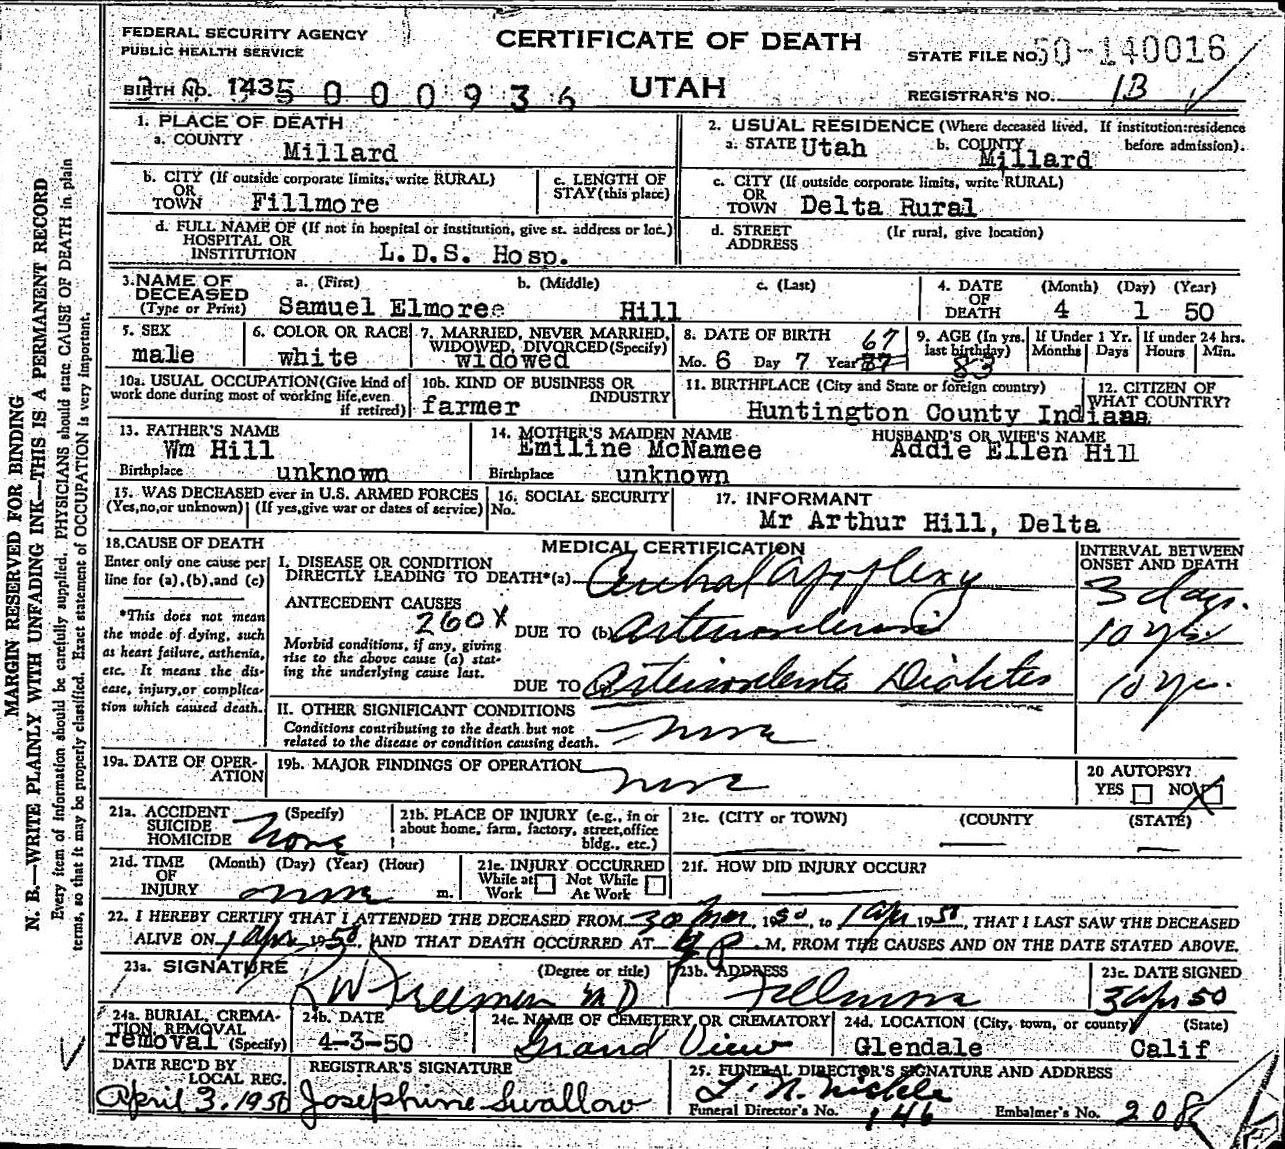 FEDERAL SECURITY AGENCY
PUBLIC HEALTH SERVICE
CERTIFICATE OF DEATH
UTAH
STATE FILE NO. 50-140016
BIRTH NO. 1435 000936
REGISTRAR'S NO. 13
1. PLACE OF DEATH
a. COUNTY
Millard
2. USUAL RESIDENCE (Where deceased lived. If institution:residence before admission).
a. STATE Utah b. COUNTY Millard
b. CITY (If outside corporate limits, write RURAL)
OR
TOWN Fillmore
c. LENGTH OF
STAY (this place)
c. CITY (If outside corporate limits, write RURAL)
OR
TOWN Delta Rural
d. FULL NAME OF (If not in hospital or institution, give st. address or loc.)
HOSPITAL OR
INSTITUTION L.D.S. Hosp.
d. STREET (If rural, give location)
ADDRESS
3. NAME OF DECEASED (Type or Print)
a. (First) b. (Middle) c. (Last)
Samuel Elmoree Hill
4. DATE OF DEATH (Month) (Day) (Year)
4 1 50
5. SEX
male
6. COLOR OR RACE
white
7. MARRIED, NEVER MARRIED, WIDOWED, DIVORCED (Specify)
widowed
8. DATE OF BIRTH 67
Mo. 6 Day 7 Year 87
9. AGE (In yrs. last birthday)
83
If Under 1 Yr. Months Days
If under 24 hrs. Hours Min.
10a. USUAL OCCUPATION (Give kind of work done during most of working life, even if retired)
10b. KIND OF BUSINESS OR INDUSTRY
farmer
11. BIRTHPLACE (City and State or foreign country)
Huntington County Indiana
12. CITIZEN OF WHAT COUNTRY?
13. FATHER'S NAME
Wm Hill
Birthplace unknown
14. MOTHER'S MAIDEN NAME
Emiline McNamee
Birthplace unknown
HUSBAND'S OR WIFE'S NAME
Addie Ellen Hill
15. WAS DECEASED ever in U.S. ARMED FORCES
(Yes, no, or unknown) (If yes, give war or dates of service)
16. SOCIAL SECURITY
No.
17. INFORMANT
Mr Arthur Hill, Delta
18. CAUSE OF DEATH
Enter only one cause per line for (a), (b), and (c)
*This does not mean the mode of dying, such as heart failure, asthenia, etc. It means the disease, injury, or complication which caused death.
MEDICAL CERTIFICATION
INTERVAL BETWEEN ONSET AND DEATH
I. DISEASE OR CONDITION
DIRECTLY LEADING TO DEATH*(a) Cerebral Apoplexy 3 days.
ANTECEDENT CAUSES
260X
DUE TO (b) Arteriosclerosis 10 yrs.
Morbid conditions, if any, giving rise to the above cause (a) stating the underlying cause last.
DUE TO Diabetes 10 yrs.
II. OTHER SIGNIFICANT CONDITIONS
Conditions contributing to the death but not related to the disease or condition causing death. none
19a. DATE OF OPERATION
19b. MAJOR FINDINGS OF OPERATION none
20 AUTOPSY?
YES NO X
21a. ACCIDENT SUICIDE HOMICIDE (Specify)
None
21b. PLACE OF INJURY (e.g., in or about home, farm, factory, street, office bldg., etc.)
21c. (CITY or TOWN) (COUNTY) (STATE)
21d. TIME OF INJURY (Month) (Day) (Year) (Hour) m.
none
21e. INJURY OCCURRED
While at Work Not While At Work
21f. HOW DID INJURY OCCUR?
22. I HEREBY CERTIFY THAT I ATTENDED THE DECEASED FROM 30 Mar, 1950, to 1 Apr 1950, THAT I LAST SAW THE DECEASED
ALIVE ON 1 Apr 1950, AND THAT DEATH OCCURRED AT P M, FROM THE CAUSES AND ON THE DATE STATED ABOVE.
23a. SIGNATURE (Degree or title)
R W Freeman MD
23b. ADDRESS
Fillmore
23c. DATE SIGNED
3 Apr 50
24a. BURIAL, CREMATION, REMOVAL (Specify)
removal
24b. DATE
4-3-50
24c. NAME OF CEMETERY OR CREMATORY
Grand View
24d. LOCATION (City, town, or county) (State)
Glendale Calif
DATE REC'D BY LOCAL REG.
April 3, 1950
REGISTRAR'S SIGNATURE
Josephine Swallow
25. FUNERAL DIRECTOR'S SIGNATURE AND ADDRESS
L. N. Nickle
Funeral Director's No. 146 Embalmer's No. 208
MARGIN RESERVED FOR BINDING
N. B.—WRITE PLAINLY WITH UNFADING INK—THIS IS A PERMANENT RECORD
Every item of information should be carefully supplied. PHYSICIANS should state CAUSE OF DEATH in plain
terms, so that it may be properly classified. Exact statement of OCCUPATION is very important.